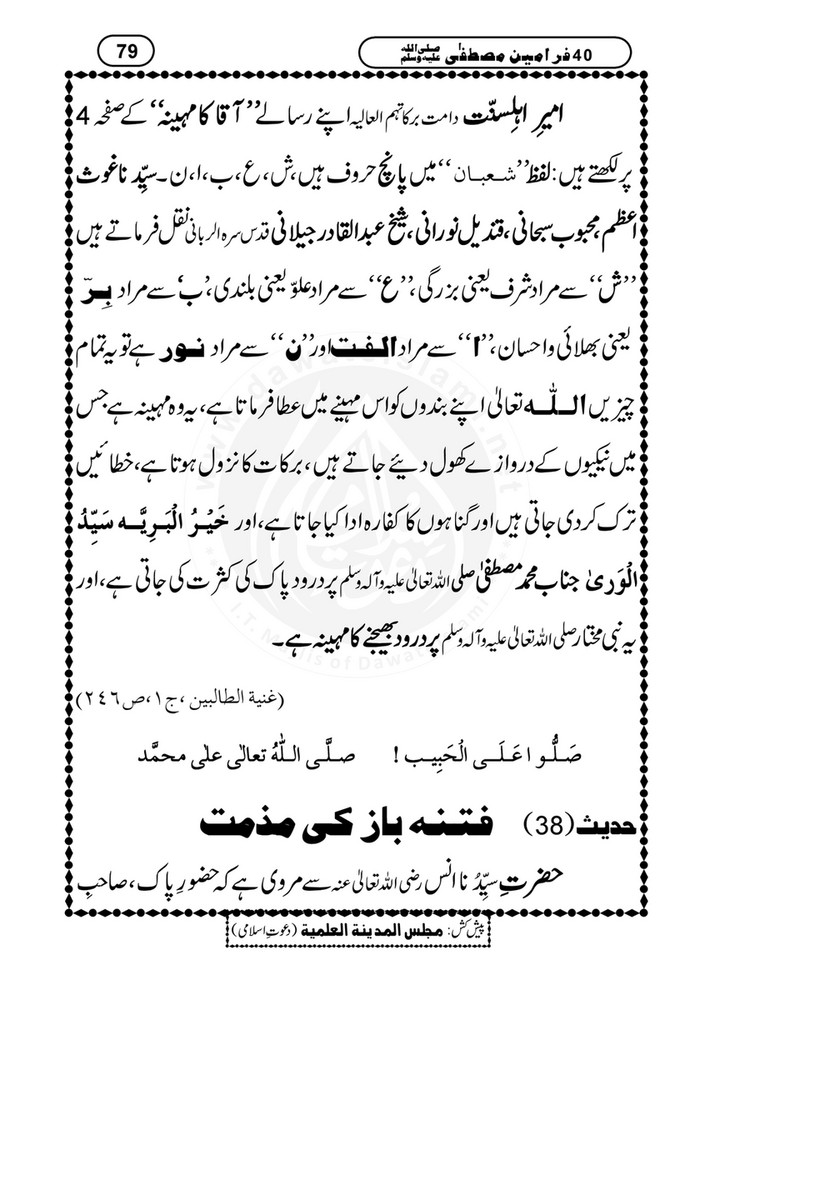 40 فرامین مصطفٰی صلی اللہ علیہ وسلم
79
امیرِ اہلِسنّت دامت برکاتہم العالیہ اپنے رسالے ’’آقا کا مہینہ‘‘ کے صفحہ 4
پر لکھتے ہیں: لفظ ’’شعبان‘‘ میں پانچ حروف ہیں، ش، ع، ب، ا، ن۔ سیِّدنا غوث
اعظم، محبوب سبحانی، قندیل نورانی، شیخ عبدالقادر جیلانی قدس سرہ الربانی نقل فرماتے ہیں
’’ش‘‘ سے مراد شرف یعنی بزرگی، ’’ع‘‘ سے مراد علوّ یعنی بلندی، ’ب‘ سے مراد بِرّ
یعنی بھلائی و احسان، ’’ا‘‘ سے مراد الفت اور ’’ن‘‘ سے مراد نور ہے تو یہ تمام
چیزیں اللّٰہ تعالیٰ اپنے بندوں کو اس مہینے میں عطا فرماتا ہے، یہ وہ مہینہ ہے جس
میں نیکیوں کے دروازے کھول دیئے جاتے ہیں، برکات کا نزول ہوتا ہے، خطائیں
ترک کردی جاتی ہیں اور گناہوں کا کفارہ ادا کیا جاتا ہے، اور خَیْرُ الْبَرِیَّہ سَیِّدُ
الْوَریٰ جناب محمد مصطفیٰ صلی اللہ تعالیٰ علیہ وآلہ وسلم پر درود پاک کی کثرت کی جاتی ہے، اور
یہ نبی مختار صلی اللہ تعالیٰ علیہ وآلہ وسلم پر درود بھیجنے کا مہینہ ہے۔
(غنیة الطالبین، ج١، ص٢٤٦)
صَلُّوا عَلَی الْحَبِیب! صلَّی اللّٰہُ تعالٰی علٰی محمَّد
حدیث (38) فتنہ باز کی مذمت
حضرتِ سیِّدُنا انس رضی اللہ تعالیٰ عنہ سے مروی ہے کہ حضورِ پاک، صاحبِ
پیش کش: مجلس المدینة العلمیة (دعوتِ اسلامی)
www.dawateislami.net
I.T. Majlis of DawateIslami